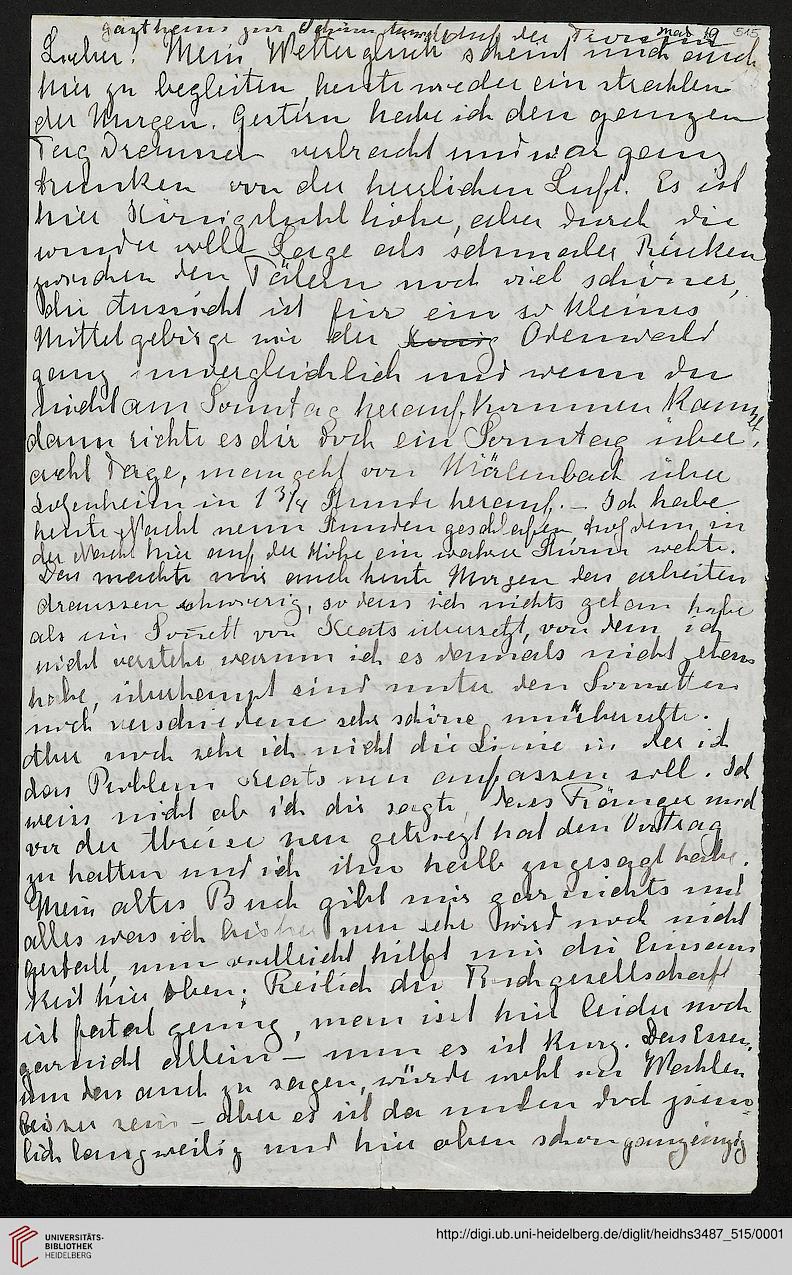 Gasthaus zur schönen Aussicht auf der Tromm Mai 19 515
Lieber! Mein Wetterglück scheint mich auch
hier zu begleiten, heute wieder ein strahlen-
der Morgen. Gestern habe ich den ganzen
Tag draussen verbracht und war ganz
trunken von der herrlichen Luft. Es ist
hier Königstuhl höhe, aber durch die
wundervolle Lage als schmaler Rücken
zwischen den Tälern noch viel schöner,
die Aussicht ist für ein so kleines
Mittelgebirge wie der Odenwald
ganz unvergleichlich und wenn du
nicht am Sonntag heraufkommen kannst,
dann richte es dir doch ein Sonntag über
acht Tage, man geht von Mörlenbach über
in 1 3/4 Stunde herauf. – Ich habe
heute Nacht neun Stunden geschlafen trotzdem in
der Nacht hier auf der Höhe ein wahrer Sturm wehte.
Das machte mir auch heute Morgen das arbeiten
draussen schwierig, so dass ich nichts getan habe
als ein Sonett von Keats übersetzt, von dem ich
nicht verstehe warum ich es damals nicht getan
habe, überhaupt sind unter den Sonetten
noch verschiedene sehr schöne unübersetzte.
Aber noch sehe ich nicht die Linie in der ich
das Problem Keats nun anfassen soll. Ich
weiss nicht ob ich dir sagte, dass Fränger mich
vor der Abreise neu getreizt hat den Vortrag
zu halten und ich ihm halb zugesagt habe.
Mein altes Buch gibt mir garnichts und
alles was ich bisher neu sehe wird noch nicht
gestalt, nun vielleicht hilft mir die Einsam-
keit hier oben. Freilich die Tischgesellschaft
ist fatal genug, man isst hier leider noch
garnicht allein – nun es ist kurz. Das Essen,
um das auch zu sagen, würde wohl bei Wachlen
besser sein – aber es ist da unten doch ziem-
lich langweilig und hier oben schon ganz einzig
UNIVERSITÄTS-
BIBLIOTHEK
HEIDELBERG
http://digi.ub.uni-heidelberg.de/diglit/heidhs3487_515/0001